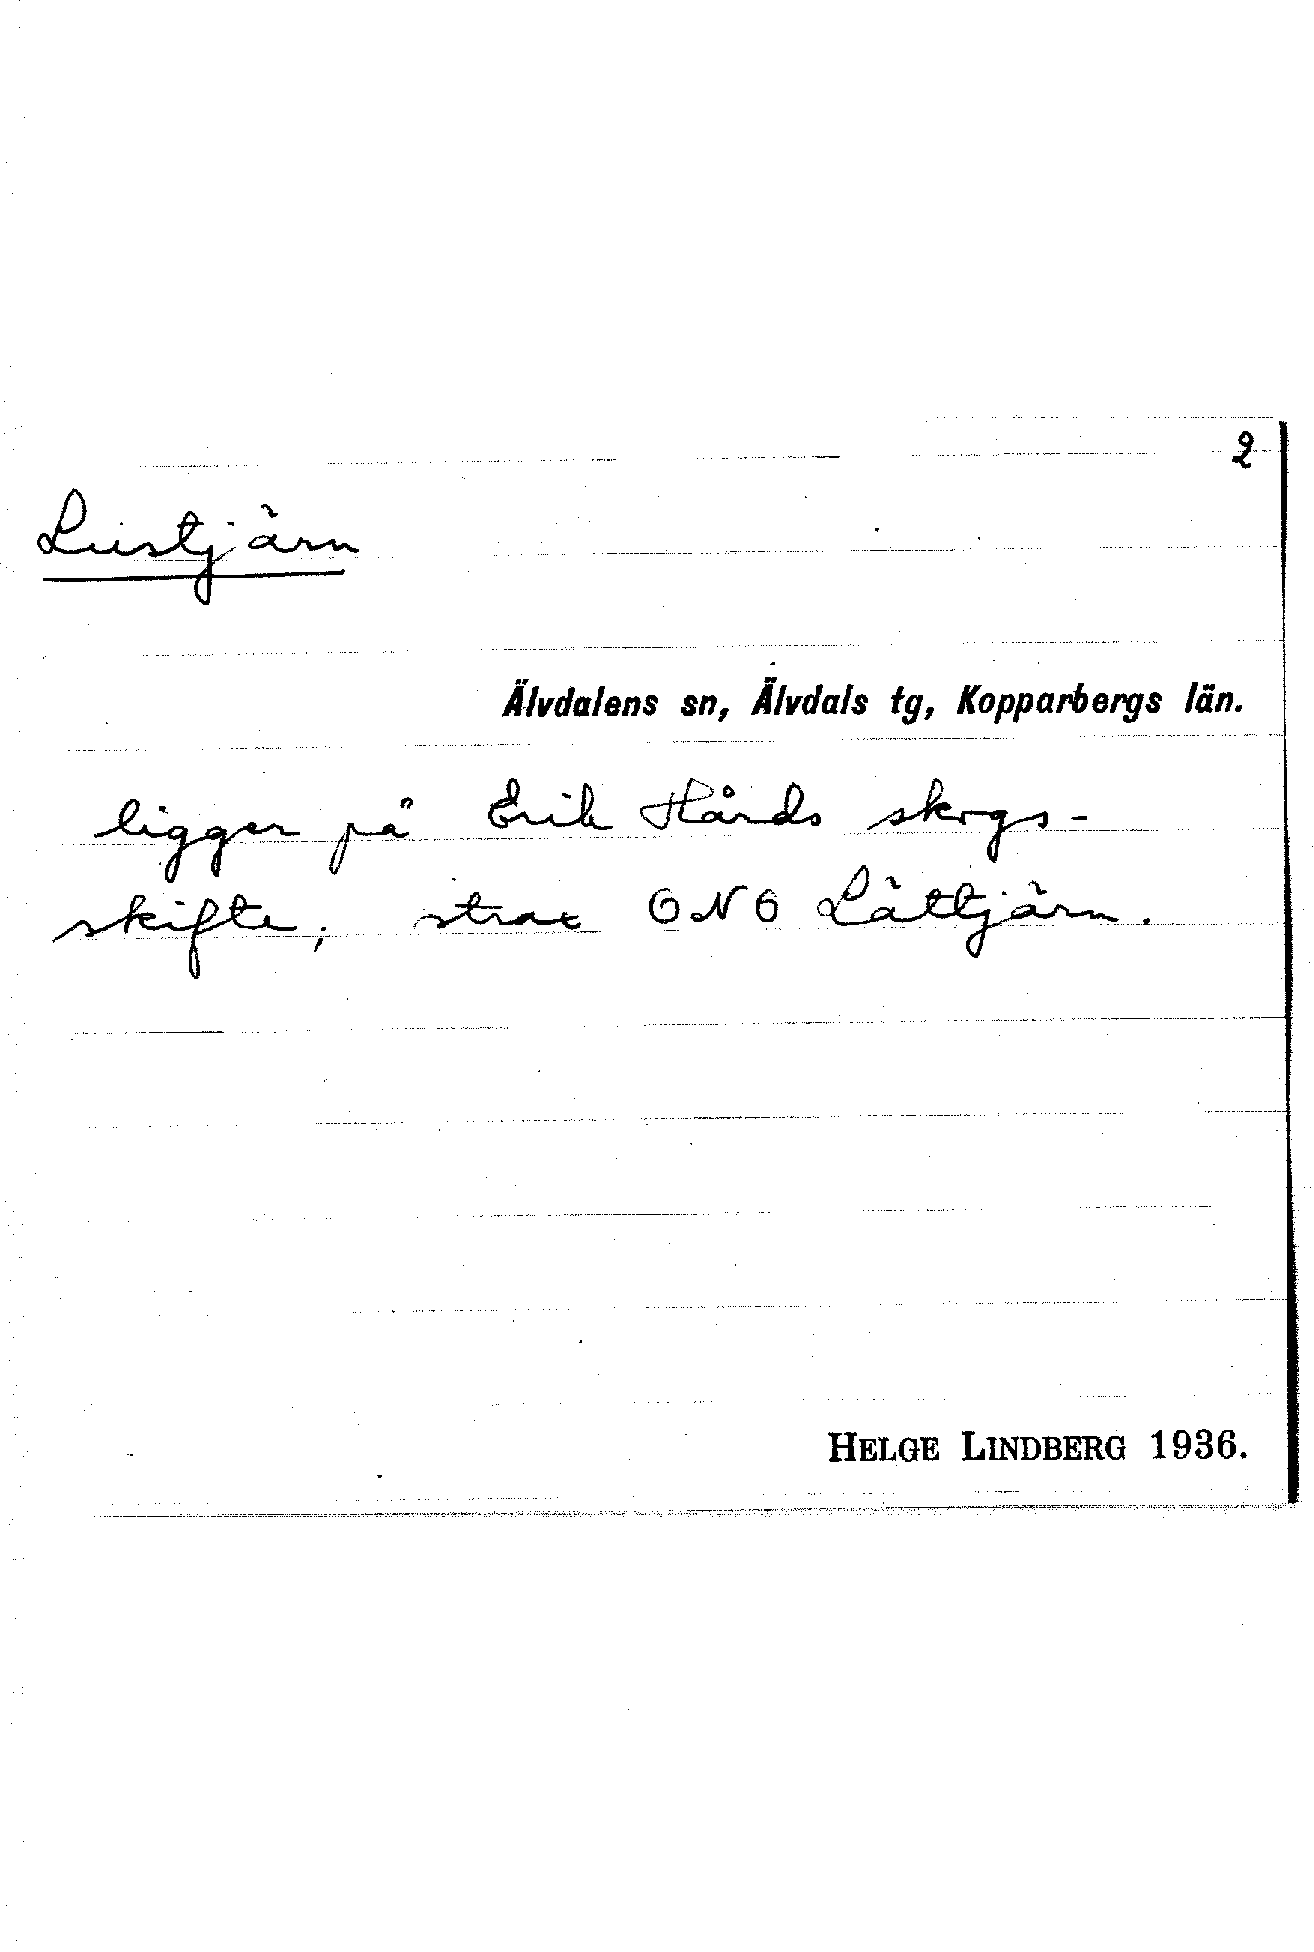 2
Lustjärn
Älvdalens sn, Älvdals tg, Kopparbergs län.
ligger på Erik Hårds skogs-
skifte, strax ONO Lättjärn.
HELGE LINDBERG 1936.